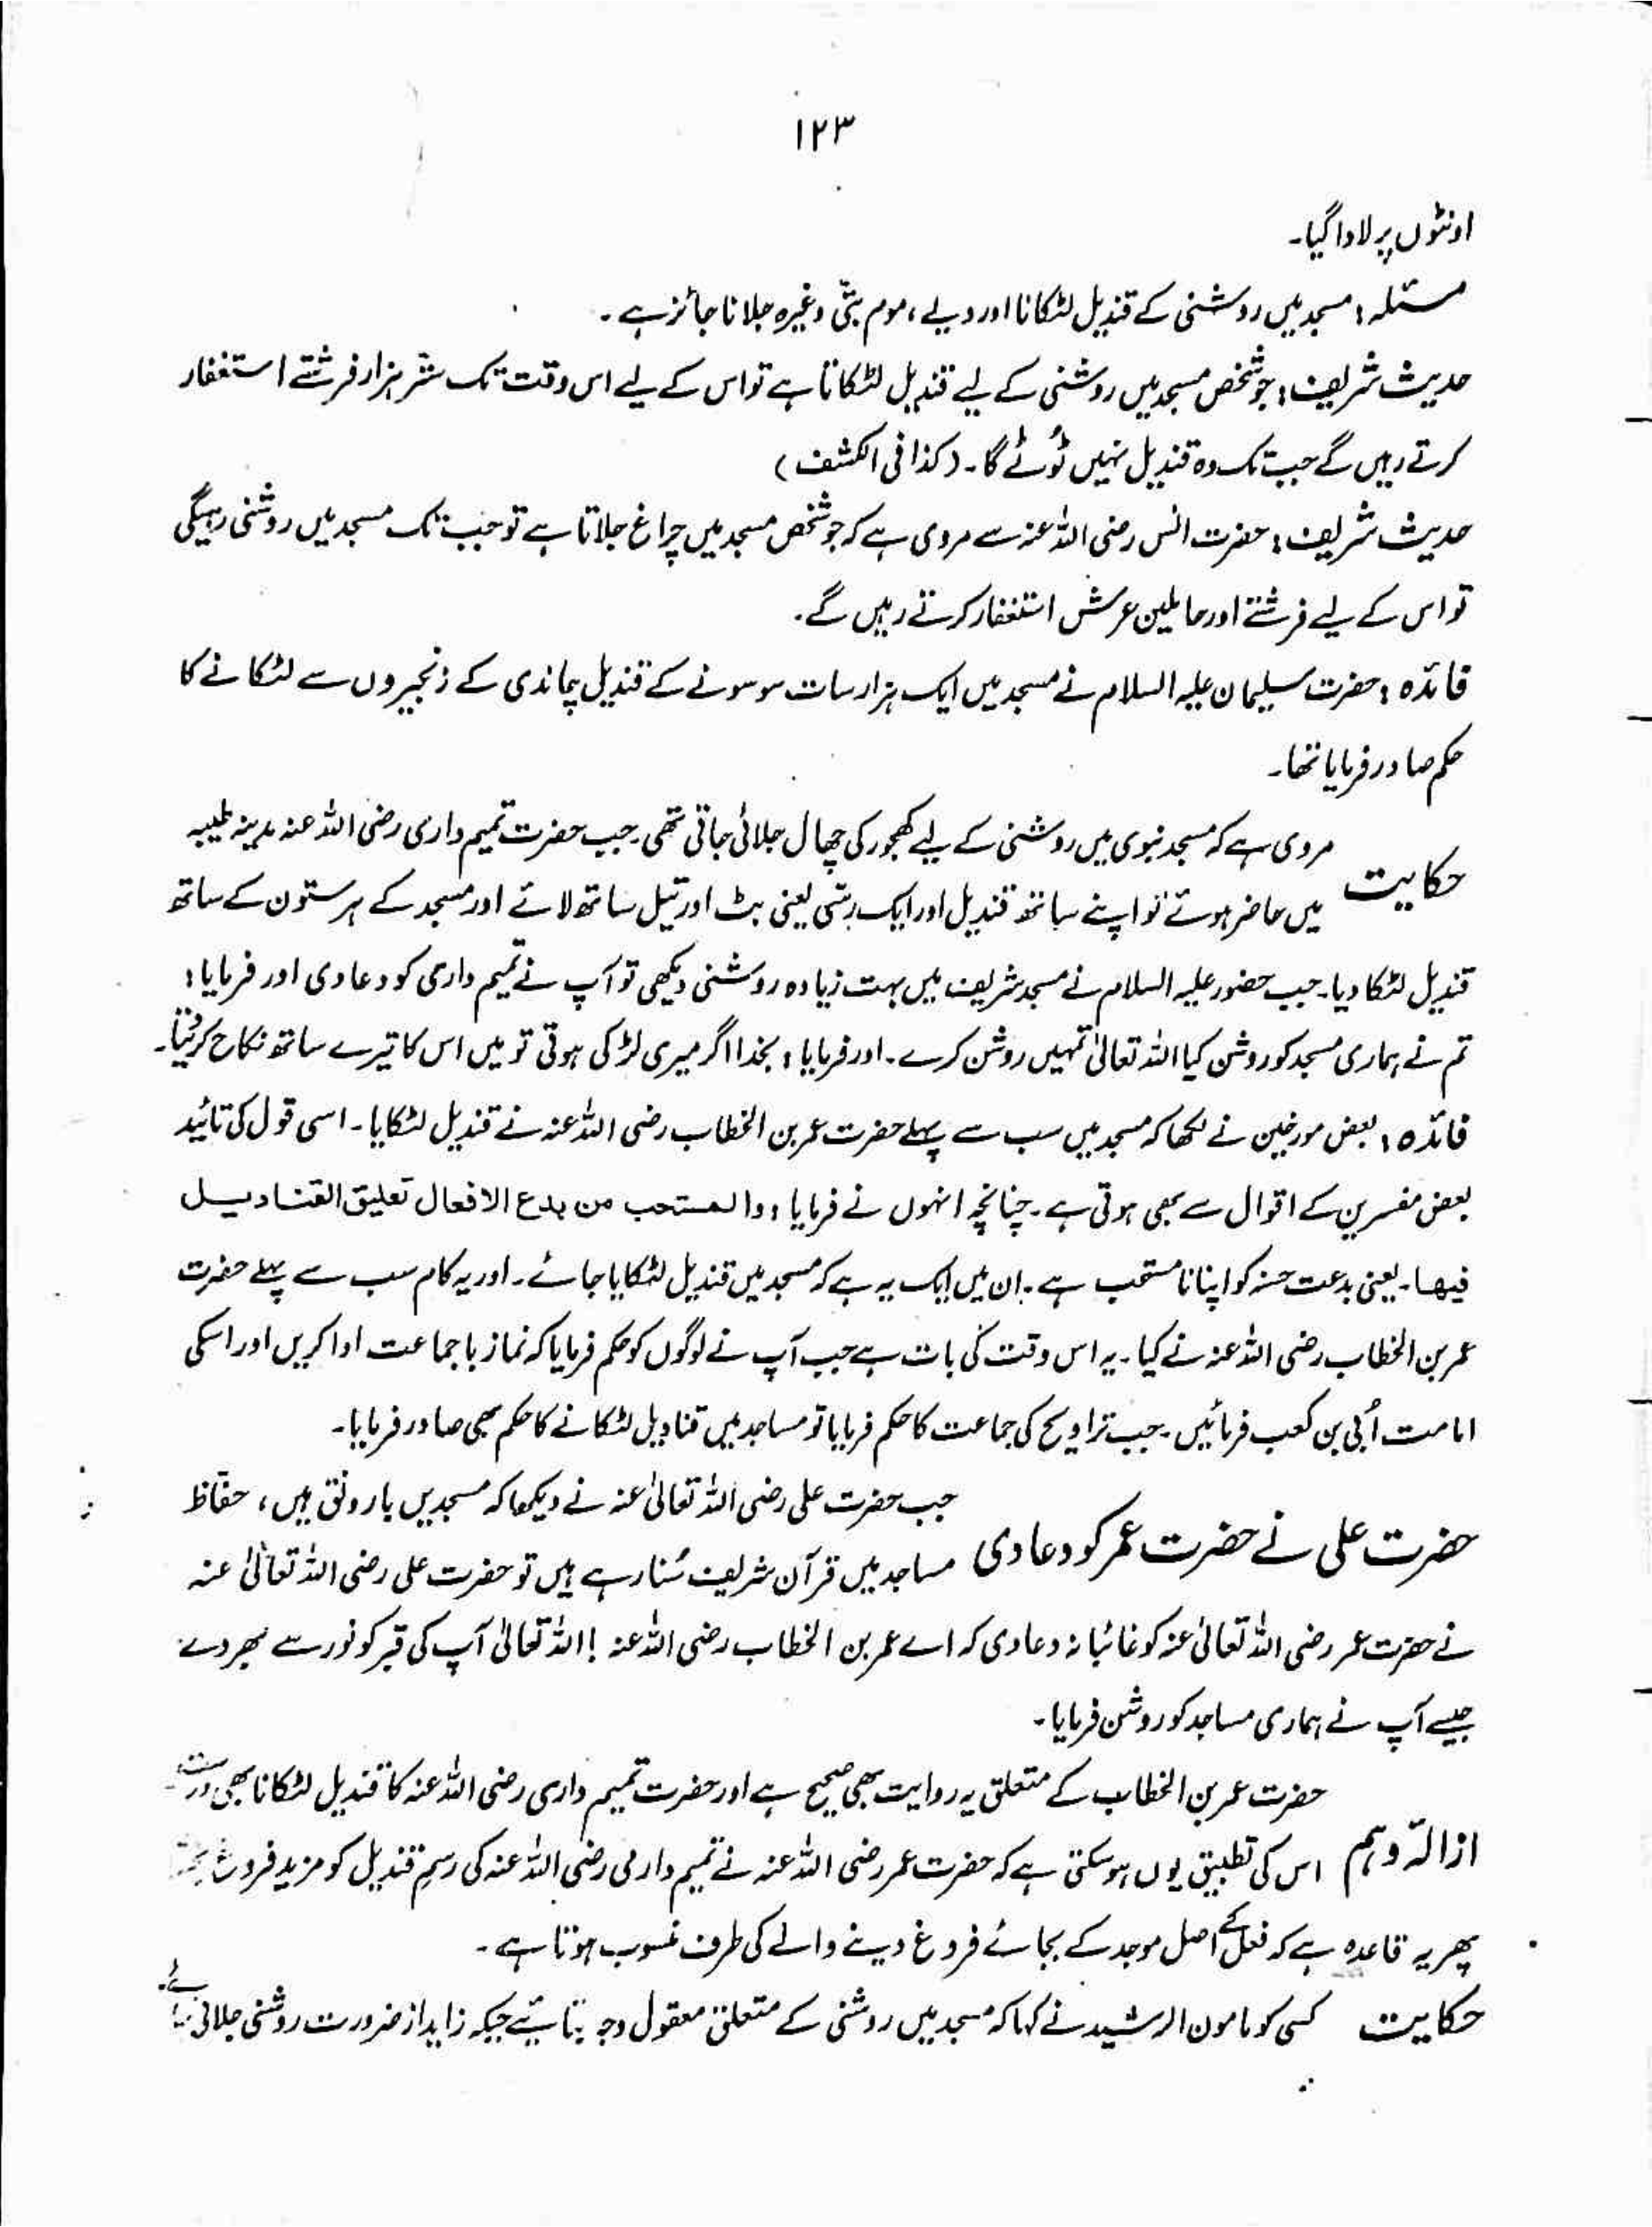 ١٢٣
اونٹوں پر لادا گیا۔
مسئلہ : مسجد میں روشنی کے قندیل لٹکانا اور دیے ، موم بتّی وغیرہ جلانا جائز ہے ۔
حدیث شریف : جو شخص مسجد میں روشنی کے لیے قندیل لٹکاتا ہے تو اس کے لیے اس وقت تک ستّر ہزار فرشتے استغفار
کرتے رہیں گے جب تک وہ قندیل نہیں ٹُوٹے گا ۔ (کذا فی الکشف)
حدیث شریف : حضرت انس رضی اللہ عنہ سے مروی ہے کہ جو شخص مسجد میں چراغ جلاتا ہے تو جب تک مسجد میں روشنی رہیگی
تو اس کے لیے فرشتے اور حاملین عرش استغفار کرتے رہیں گے ۔
فائدہ : حضرت سلیمان علیہ السلام نے مسجد میں ایک ہزار سات سو سونے کے قندیل چاندی کے زنجیروں سے لٹکانے کا
حکم صادر فرمایا تھا۔
حکایت مروی ہے کہ مسجد نبوی میں روشنی کے لیے کھجور کی چھال جلائی جاتی تھی۔ جب حضرت تمیم داری رضی اللہ عنہ مدینہ طیبہ
میں حاضر ہوئے تو اپنے ساتھ قندیل اور ایک رسّی یعنی بٹ اور تیل ساتھ لائے اور مسجد کے ہر ستون کے ساتھ
قندیل لٹکا دیا۔ جب حضور علیہ السلام نے مسجد شریف میں بہت زیادہ روشنی دیکھی تو آپ نے تمیم داری کو دعا دی اور فرمایا :
تم نے ہماری مسجد کو روشن کیا اللہ تعالیٰ تمہیں روشن کرے ۔ اور فرمایا : بخدا اگر میری لڑکی ہوتی تو میں اس کا تیرے ساتھ نکاح کر دیتا۔
فائدہ : بعض مورخین نے لکھا کہ مسجد میں سب سے پہلے حضرت عمر بن الخطاب رضی اللہ عنہ نے قندیل لٹکایا ۔ اسی قول کی تائید
بعض مفسرین کے اقوال سے بھی ہوتی ہے ۔ چنانچہ انہوں نے فرمایا : والمستحب من بدع الافعال تعلیق القنادیل
فیها ۔ یعنی بدعت حسنہ کو اپنانا مستحب ہے ۔ ان میں ایک یہ ہے کہ مسجد میں قندیل لٹکایا جائے ۔ اور یہ کام سب سے پہلے حضرت
عمر بن الخطاب رضی اللہ عنہ نے کیا ۔ یہ اس وقت کی بات ہے جب آپ نے لوگوں کو حکم فرمایا کہ نماز باجماعت ادا کریں اور اسکی
امامت اُبی بن کعب فرمائیں ۔ جب تراویح کی جماعت کا حکم فرمایا تو مساجد میں قنادیل لٹکانے کا حکم بھی صادر فرمایا ۔
حضرت علی نے حضرت عمر کو دعا دی جب حضرت علی رضی اللہ تعالیٰ عنہ نے دیکھا کہ مسجدیں بارونق ہیں ، حفّاظ
مساجد میں قرآن شریف سُنا رہے ہیں تو حضرت علی رضی اللہ تعالیٰ عنہ
نے حضرت عمر رضی اللہ تعالیٰ عنہ کو غائبانہ دعا دی کہ اے عمر بن الخطاب رضی اللہ عنہ ! اللہ تعالیٰ آپ کی قبر کو نور سے بھر دے
جیسے آپ نے ہماری مساجد کو روشن فرمایا ۔
حضرت عمر بن الخطاب کے متعلق یہ روایت بھی صحیح ہے اور حضرت تمیم داری رضی اللہ عنہ کا قندیل لٹکانا بھی درست
ازالۂ وہم اس کی تطبیق یوں ہو سکتی ہے کہ حضرت عمر رضی اللہ عنہ نے تمیم داری رضی اللہ عنہ کی رسمِ قندیل کو مزید فروغ
پھر یہ قاعدہ ہے کہ فعل کے اصل موجد کے بجائے فروغ دینے والے کی طرف منسوب ہوتا ہے ۔
حکایت کسی کو مامون الرشید نے کہا کہ مسجد میں روشنی کے متعلق معقول وجہ بتائیے جبکہ زاید از ضرورت روشنی جلائی جائے